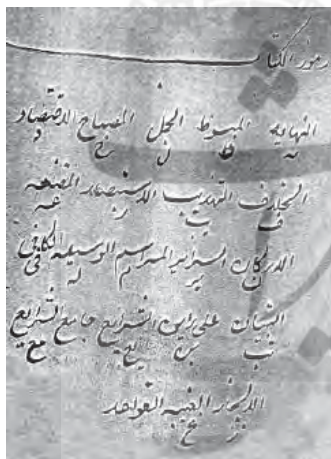 رموز الكتاب
النهاية المبسوط الجمل المصباح الاقتصاد
يه ط ل ح د
الخلاف التهذيب الاستبصار المقنعه
ف يب ر عه
الاركان السراير المراسم الوسيله الكافي
ن ير م له في
التبيان على ابن الشرايع جامع الشرايع
يع مع
الغنيه القواعد